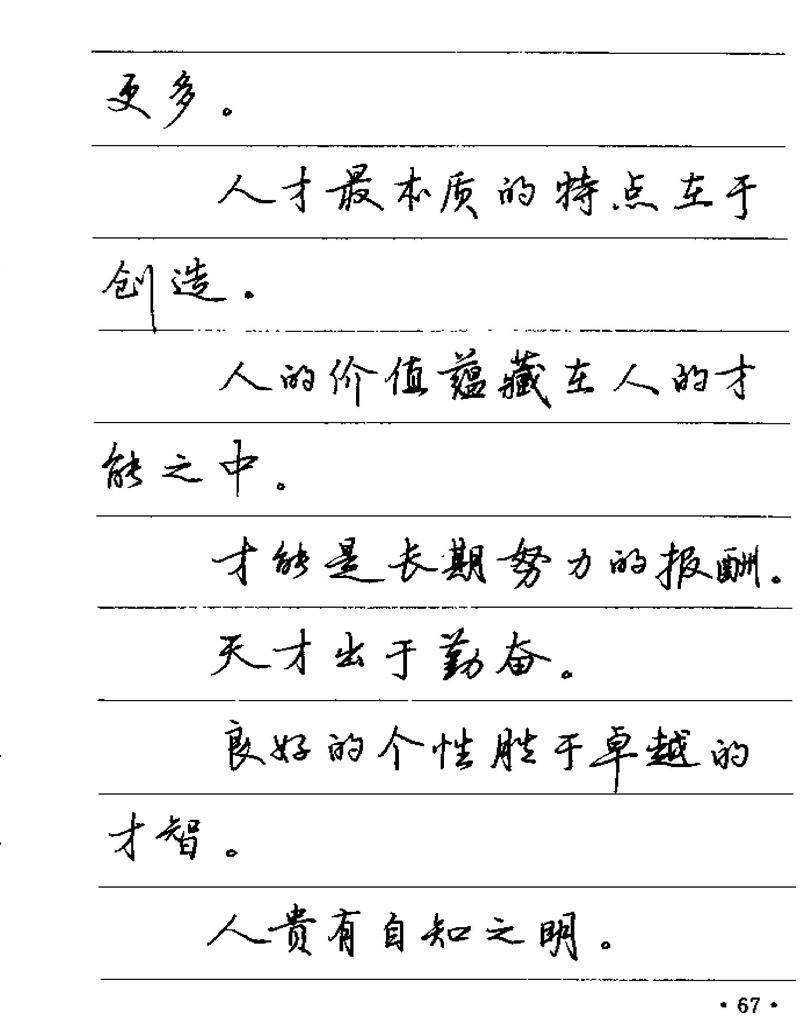 更多。
人才最本质的特点在于
创造。
人的价值蕴藏在人的才
能之中。
才能是长期努力的报酬。
天才出于勤奋。
良好的个性胜于卓越的
才智。
人贵有自知之明。
·67·